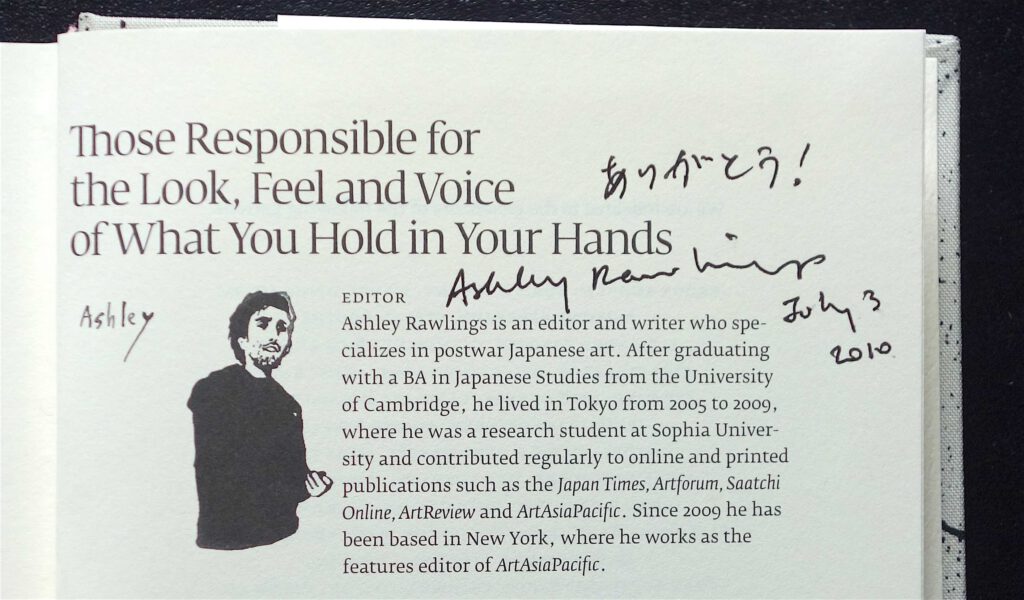 Those Responsible for
the Look, Feel and Voice
of What You Hold in Your Hands
ありがとう!
Ashley Rawlings
July 3
2010
Ashley
EDITOR
Ashley Rawlings is an editor and writer who spe-
cializes in postwar Japanese art. After graduating
with a BA in Japanese Studies from the University
of Cambridge, he lived in Tokyo from 2005 to 2009,
where he was a research student at Sophia Univer-
sity and contributed regularly to online and printed
publications such as the Japan Times, Artforum, Saatchi
Online, ArtReview and ArtAsiaPacific. Since 2009 he has
been based in New York, where he works as the
features editor of ArtAsiaPacific.